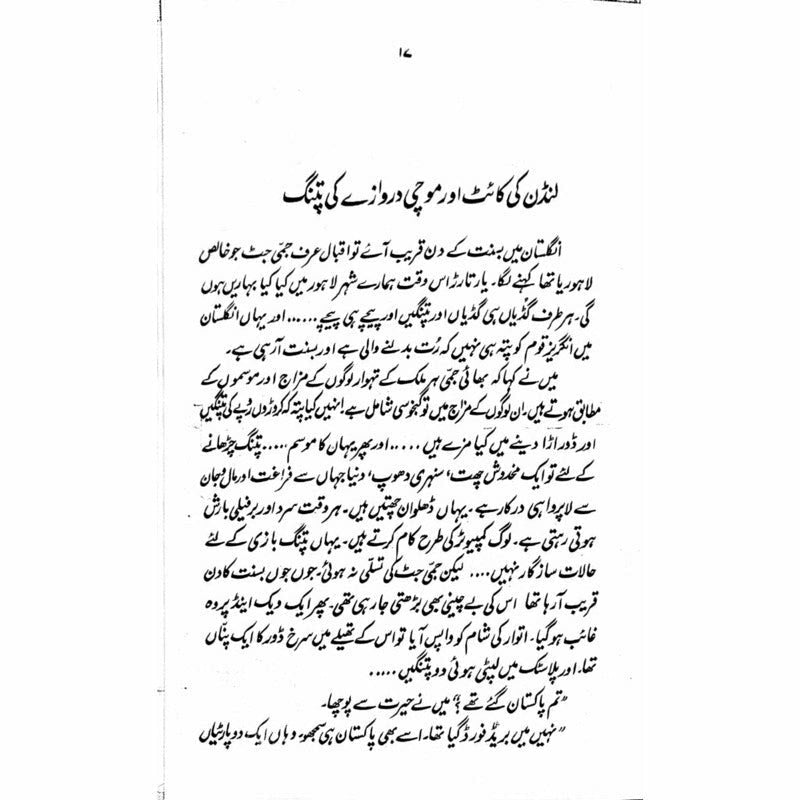 ۱۷
لنڈن کی کائٹ اور موچی دروازے کی پتنگ
انگلستان میں بسنت کے دن قریب آئے تو اقبال عرف جمّی جٹ جو خالص
لاہوریا تھا کہنے لگا۔ یار تارڑ اس وقت ہمارے شہر لاہور میں کیا کیا بہاریں ہوں
گی۔ ہر طرف گُڈیاں ہی گڈیاں اور پتنگیں اور پیچے ہی پیچے...... اور یہاں انگلستان
میں انگریز قوم کو پتہ ہی نہیں کہ رُت بدلنے والی ہے اور بسنت آ رہی ہے۔
میں نے کہا کہ بھائی جمّی ہر ملک کے تہوار لوگوں کے مزاج اور موسموں کے
مطابق ہوتے ہیں۔ اِن لوگوں کے مزاج میں تو کنجوسی شامل ہے! انہیں کیا پتہ کہ کروڑوں روپے کی پتنگیں
اور ڈور اڑا دینے میں کیا مزے ہیں ..... اور پھر یہاں کا موسم ..... پتنگ چڑھانے
کے لئے تو ایک مخدوش چھت، سنہری دھوپ، دنیا جہاں سے فراغت اور مال و جان
سے لاپرواہی درکار ہے۔ یہاں ڈھلوان چھتیں ہیں۔ ہر وقت سرد اور برفیلی بارش
ہوتی رہتی ہے۔ لوگ کمپیوٹر کی طرح کام کرتے ہیں۔ یہاں پتنگ بازی کے لئے
حالات سازگار نہیں.... لیکن جمّی جٹ کی تسلّی نہ ہوئی۔ جوں جوں بسنت کا دن
قریب آ رہا تھا اس کی بے چینی بھی بڑھتی جا رہی تھی۔ پھر ایک ویک اینڈ پر وہ
غائب ہو گیا۔ اتوار کی شام کو واپس آیا تو اس کے تھیلے میں سرخ ڈور کا ایک پنّاں
تھا۔ اور پلاسٹک میں لپٹی ہوئی دو پتنگیں .....
”تم پاکستان گئے تھے؟“ میں نے حیرت سے پوچھا۔
”نہیں میں بریڈ فورڈ گیا تھا۔ اسے بھی پاکستان ہی سمجھو۔ وہاں ایک دو پارٹیاں